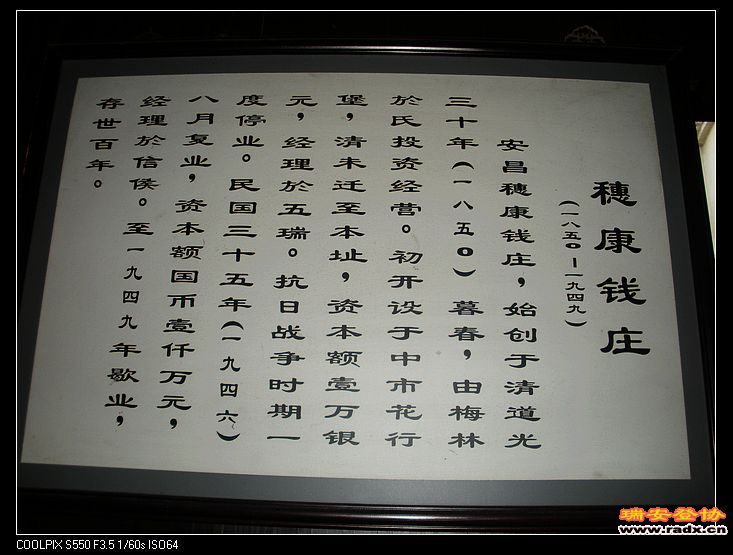 穗康钱庄
(一八五〇—一九四九)
安昌穗康钱庄，始创于清道光
三十年(一八五〇)暮春，由梅林
於氏投资经营。初开设于中市花行
堡，清末迁至本址，资本额壹万银
元，经理於五瑞。抗日战争时期一
度停业。民国三十五年(一九四六)
八月复业，资本额国币壹仟万元，
经理於信侯。至一九四九年歇业，
存世百年。
瑞安登协
www.radx.cn
COOLPIX S550 F3.5 1/60s ISO64